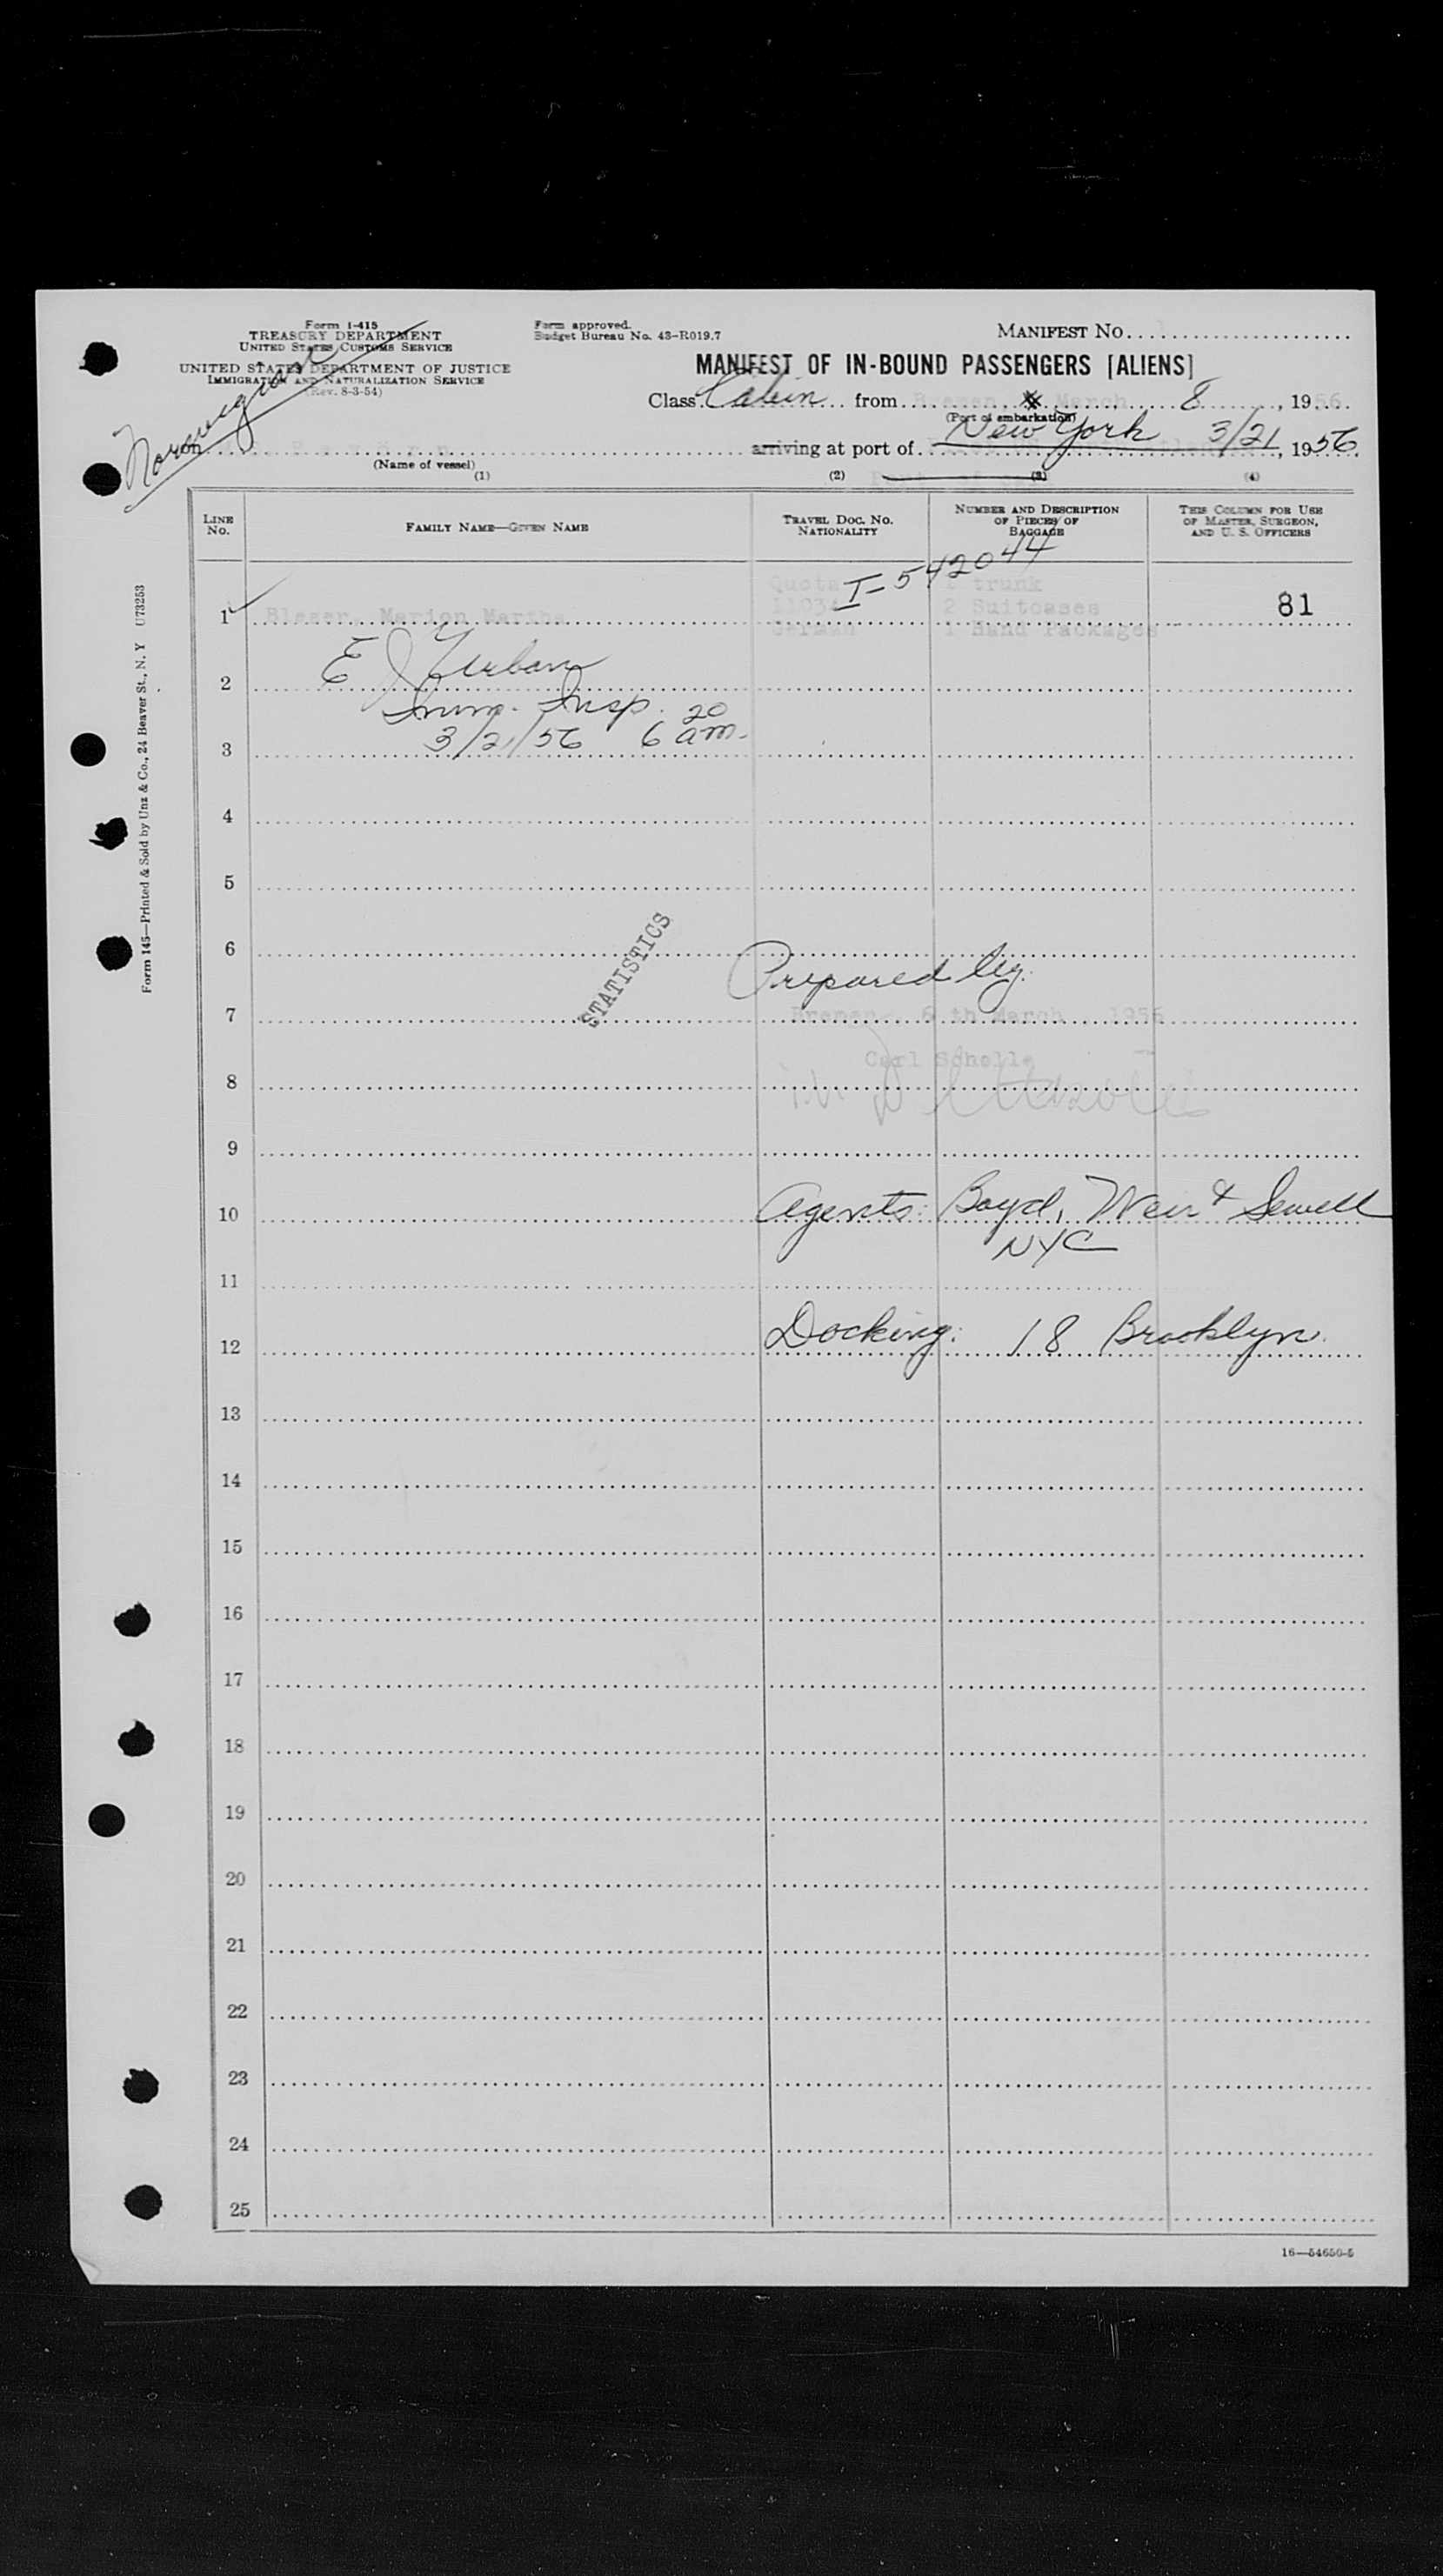 Form I-415
TREASURY DEPARTMENT
UNITED STATES CUSTOMS SERVICE
UNITED STATES DEPARTMENT OF JUSTICE
IMMIGRATION AND NATURALIZATION SERVICE
(Rev. 8-3-54)
Form approved.
Budget Bureau No. 43-R019.7
MANIFEST NO.
MANIFEST OF IN-BOUND PASSENGERS [ALIENS]
Class Cabin from Bremen March 8, 1956
(Port of embarkation)
Norwegian
on
arriving at port of New York 3/21, 1956
(Name of vessel)
(1) (2) (3) (4)
LINE No.
FAMILY NAME—GIVEN NAME
TRAVEL DOC. No. NATIONALITY
NUMBER AND DESCRIPTION OF PIECES OF BAGGAGE
THIS COLUMN FOR USE OF MASTER, SURGEON, AND U. S. OFFICERS
I-542044
Quota trunk
1 Marion Martha 2 Suitcases 81
German 1 Hand Packages
2 E J Urban
Imm. Insp. 20
3 3/21/56 6 am.
4
5
STATISTICS
6
Prepared by:
7 Bremen, 6 th March 1956
Carl Scholle
8
9
10 Agents: Boyd, Weir & Sewell
NYC
11
12 Docking: 18 Brooklyn.
13
14
15
16
17
18
19
20
21
22
23
24
25
16—54650-5
Form 145—Printed & Sold by Unz & Co., 24 Beaver St., N. Y U73253